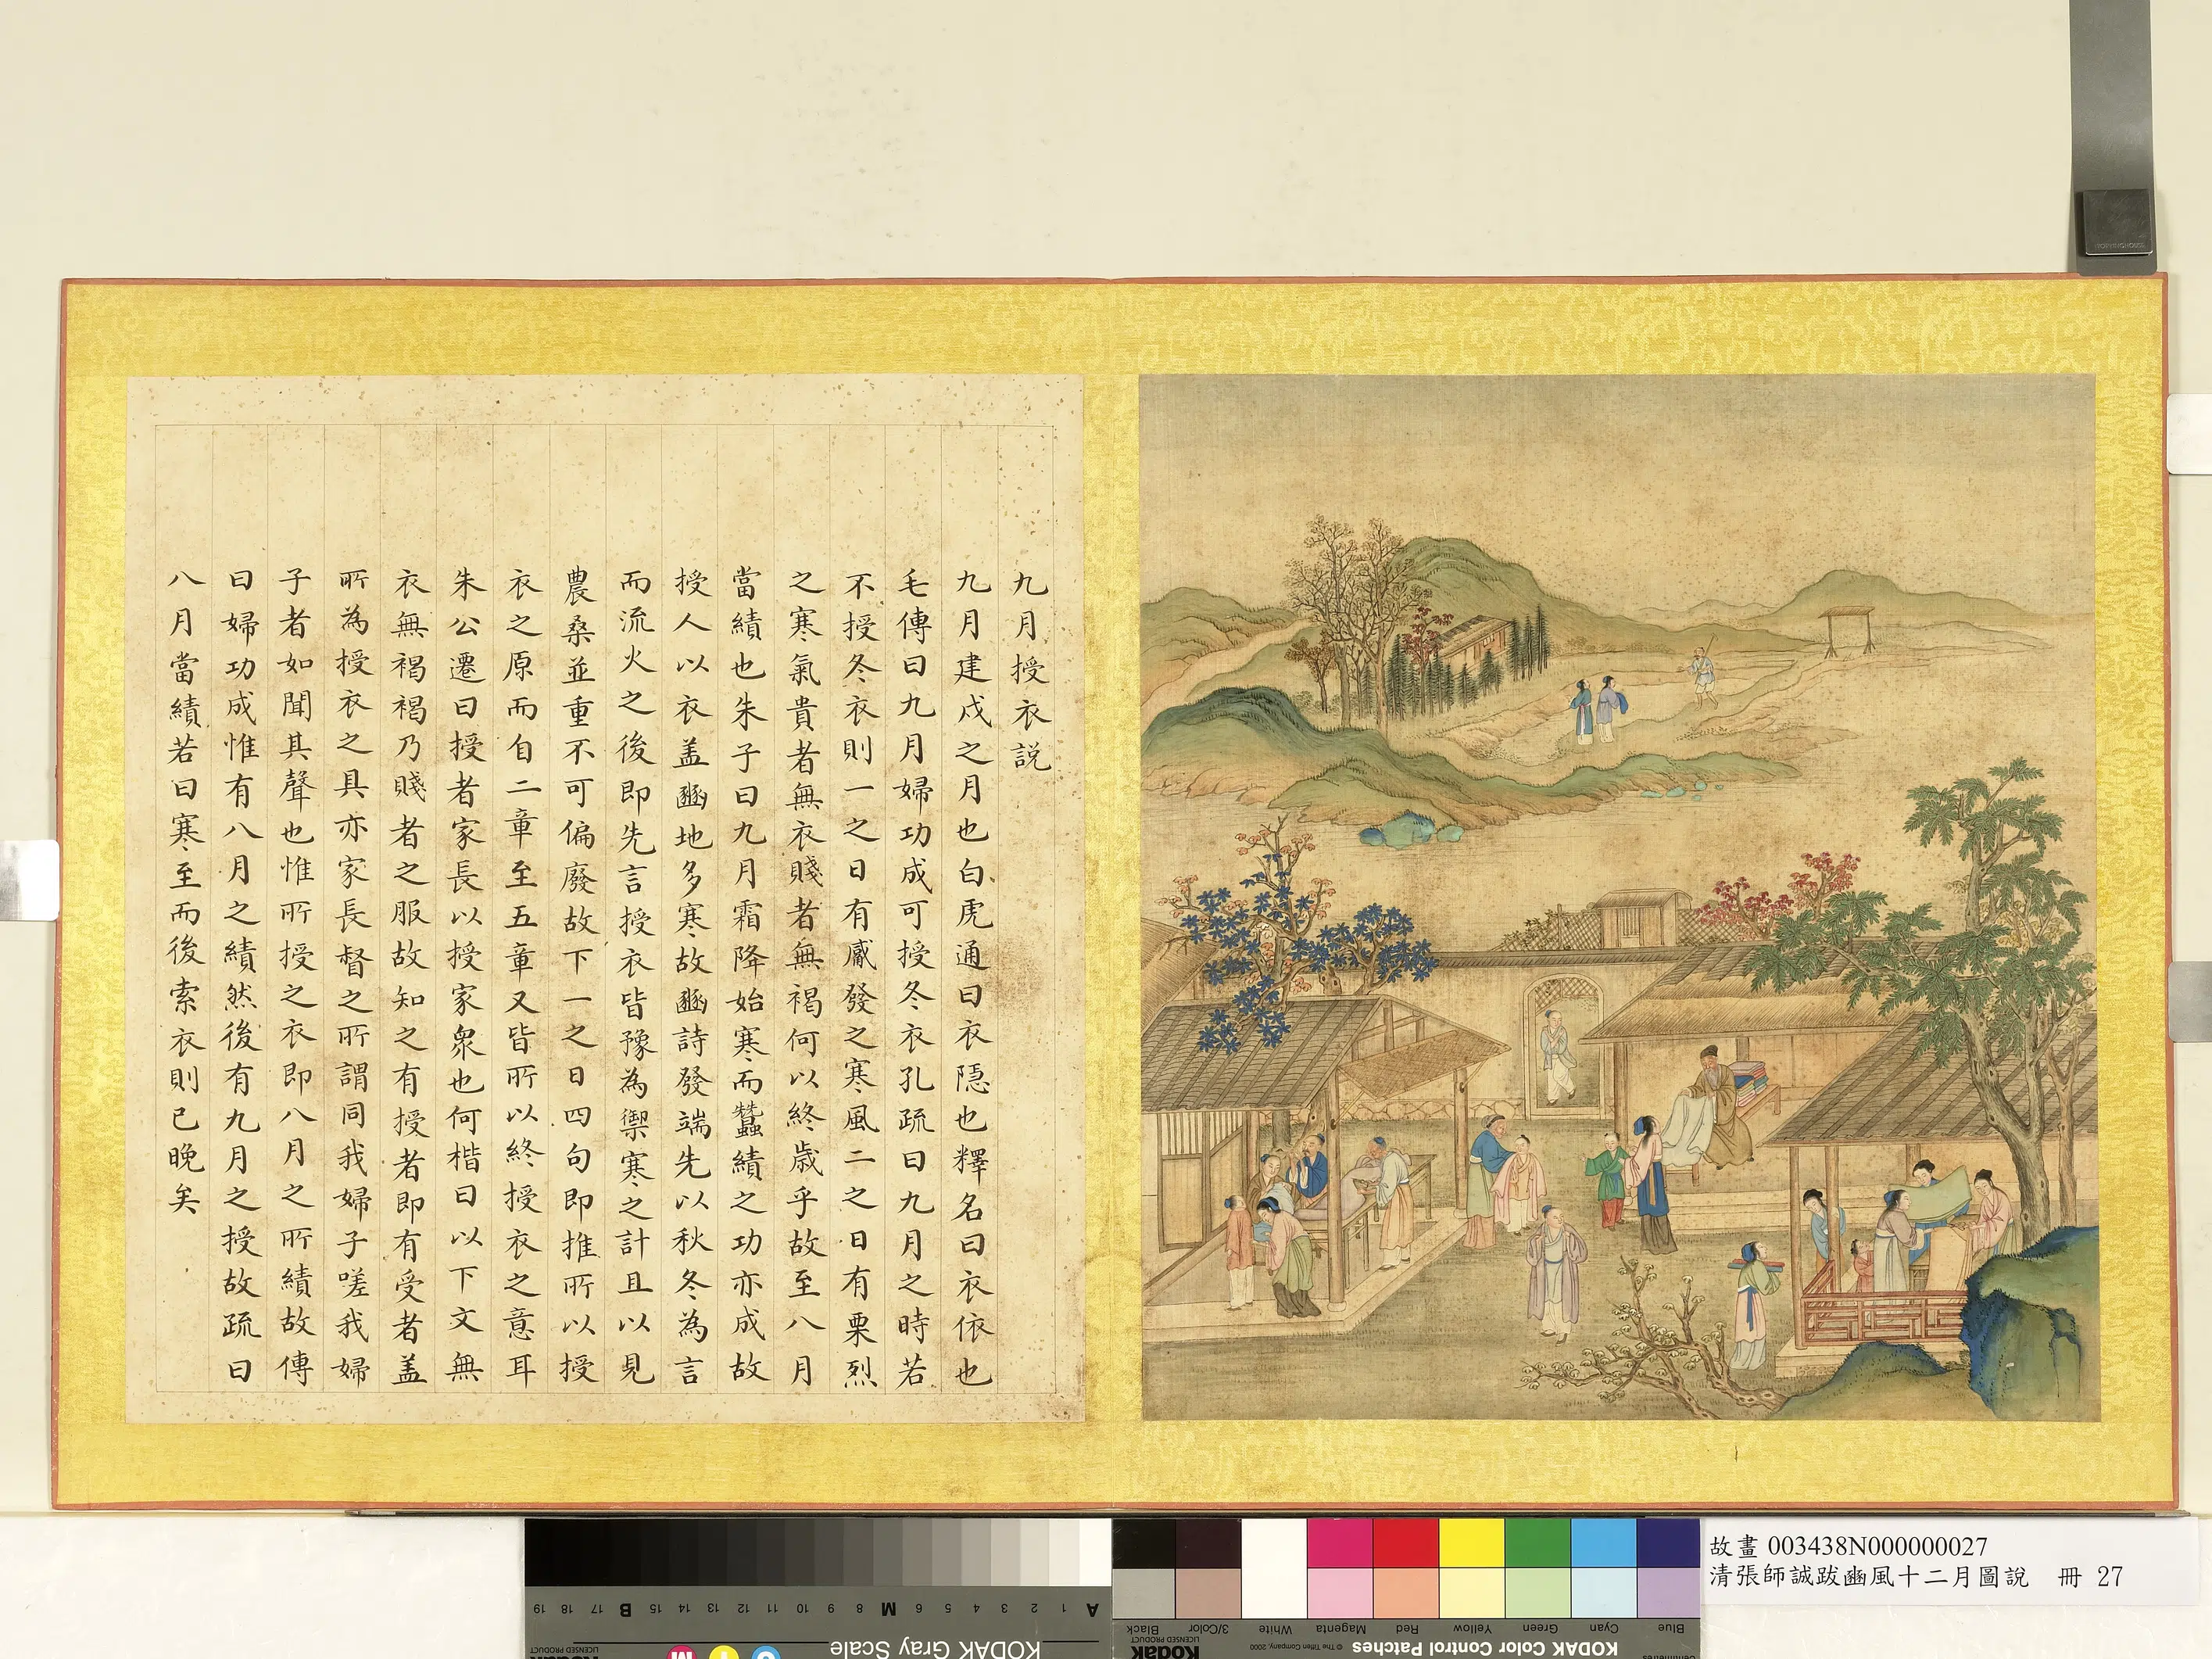 九月授衣説
九月建戌之月也白虎通曰衣隱也釋名曰衣依也
毛傳曰九月婦功成可授冬衣孔疏曰九月之時若
不授冬衣則一之日有觱發之寒風二之日有栗烈
之寒氣貴者無衣賤者無褐何以終歲乎故至八月
當績也朱子曰九月霜降始寒而蠶績之功亦成故
授人以衣盖豳地多寒故豳詩發端先以秋冬為言
而流火之後即先言授衣皆豫為禦寒之計且以見
農桑並重不可偏廢故下一之日四句即推所以授
衣之原而自二章至五章又皆所以終授衣之意耳
朱公遷曰授者家長以授家眾也何楷曰以下文無
衣無褐褐乃賤者之服故知之有授者即有受者盖
所為授衣之具亦家長督之所謂同我婦子嗟我婦
子者如聞其聲也惟所授之衣即八月之所績故傳
曰婦功成惟有八月之績然後有九月之授故疏曰
八月當績若曰寒至而後索衣則已晚矣
故畫 003438N000000027
清張師誠跋豳風十二月圖說 冊 27
KODAK Gray Scale
KODAK Color Control Patches
© The Tiffen Company, 2000
Kodak
LICENSED PRODUCT
Blue Cyan Green Yellow Red Magenta White 3/Color Black
A 1 2 3 4 5 6 M 8 9 10 11 12 13 14 15 B 17 18 19